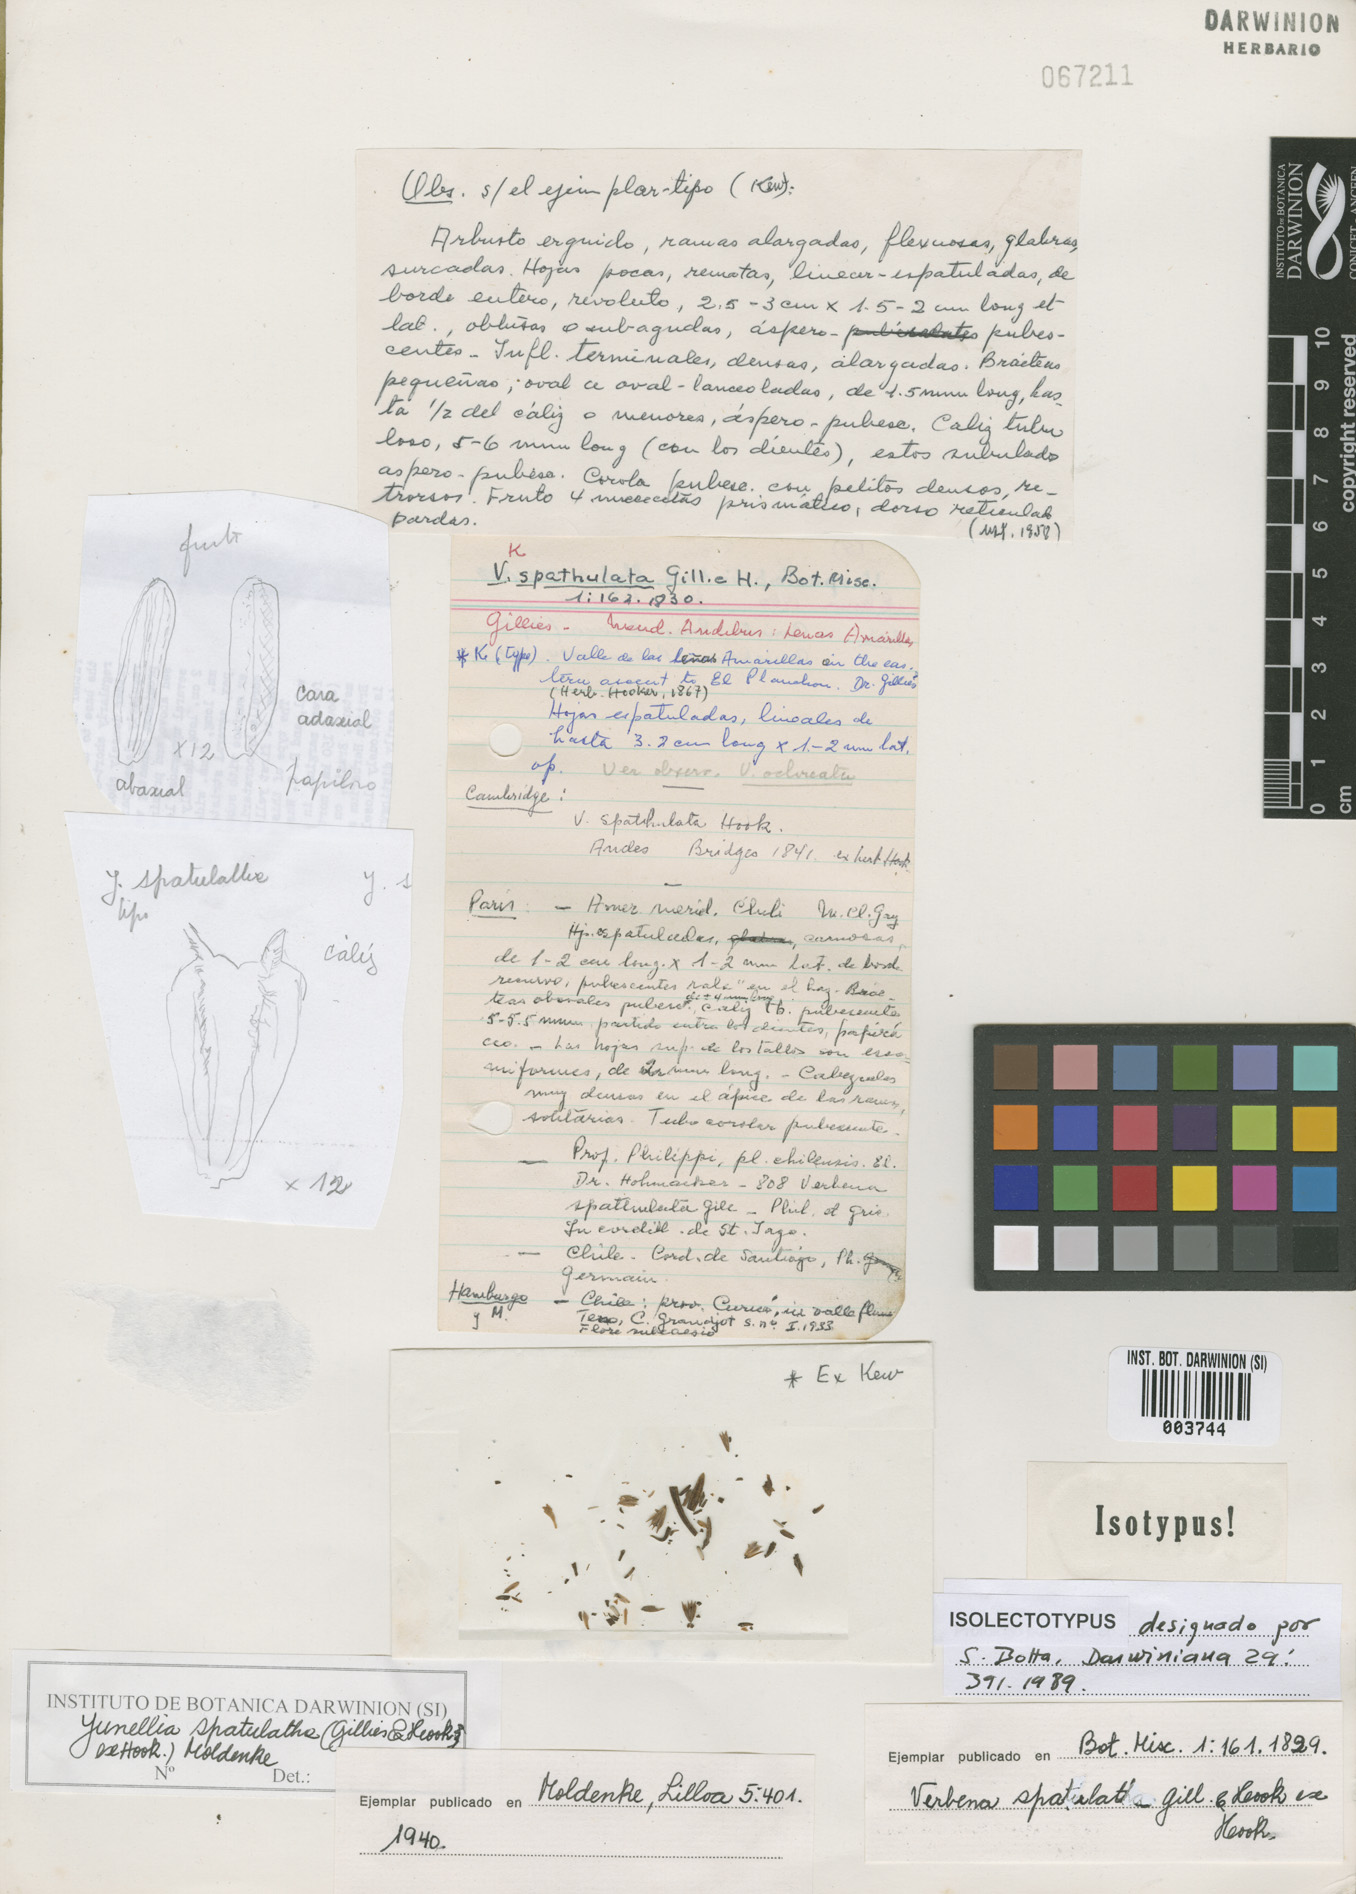 DARWINION
HERBARIO
067211
Obs. s/el ejemplar-tipo (Kew):
Arbusto erguido, ramas alargadas, flexuosas, glabras,
surcadas. Hojas pocas, remotas, linear-espatuladas, de
borde entero, revoluto, 2.5-3 cm x 1.5-2 mm long et
lat., obtusas o subagudas, áspero- pubes-
centes - Infl. terminales, densas, alargadas. Brácteas
pequeñas, oval a oval-lanceoladas, de 1.5 mm long, has-
ta 1/2 del cáliz o menores, áspero-pubesc. Caliz tubu
loso, 5-6 mm long (con los dientes), estos subulado
aspero-pubesc. Corola pubesc. con pelitos densos, re-
trorsos. Fruto 4 prismático, dorso reticulado
pardas.
1958)
fruto
cara
adaxial
x12
abaxial
papiloso
J. spatulatha
tipo
J. s
cáliz
x 12
K
V. spathulata Gill. e H., Bot. Misc.
1:162. 1830.
Gillies - Mend. Andibus: Lenas Amarillas
* K (type). Valle de las Leñas Amarillas on the eas-
tern ascent to El Planchon. Dr. Gillies
(Herb. Hooker, 1867)
Hojas espatuladas, lineales de
hasta 3.2 cm long x 1-2 mm lat.
op. Ver observ. V.
Cambridge:
V. spathulata Hook.
Andes Bridges 1841. ex herb. Hook
Paris: - Amer. merid. Chili M. Cl. Gay
Hj. espatuladas, carnosas,
de 1-2 cm long. x 1-2 mm lat. de borde
recurvo, pubescentes en el haz. Brác-
teas obovales pubesc. de ± 4 mm long, Caliz tb. pubescente
5-5.5 mm, partido entre los dientes, papirá
ceo. - Las hojas sup. de los tallos son esca-
miformes, de 2 mm long. - Cabezuelas
muy densas en el ápice de las ramas,
solitarias. Tubo corolar pubescente.
- Prof. Philippi, pl. chilensis. Ed.
Dr. Hohenacker - 808 Verbena
spathulata Gill - Phil. et
In cordill. de St. Jago.
- Chile. Cord. de Santiago, Ph.
Germain.
Hamburgo
y M.
- Chile: prov. Curicó, in valle flum
Teno, C. Grandjot s.nº I.1933
Flore subcaesio
* Ex Kew
INSTITUTO DE BOTANICA
DARWINION
CONICET-ANCEFN
copyright reserved
10
9
8
7
6
5
4
3
2
1
0
cm
INST. BOT. DARWINION (SI)
003744
Isotypus!
ISOLECTOTYPUS designado por
S. Botta, Darwiniana 29:
391. 1989.
INSTITUTO DE BOTANICA DARWINION (SI)
Junellia spatulatha (Gillies & Hook.
ex Hook.) Moldenke
Nº Det.:
Ejemplar publicado en Moldenke, Lilloa 5:401.
1940.
Ejemplar publicado en Bot. Misc. 1:161. 1829.
Verbena spatulatha Gill. & Hook ex
Hook.